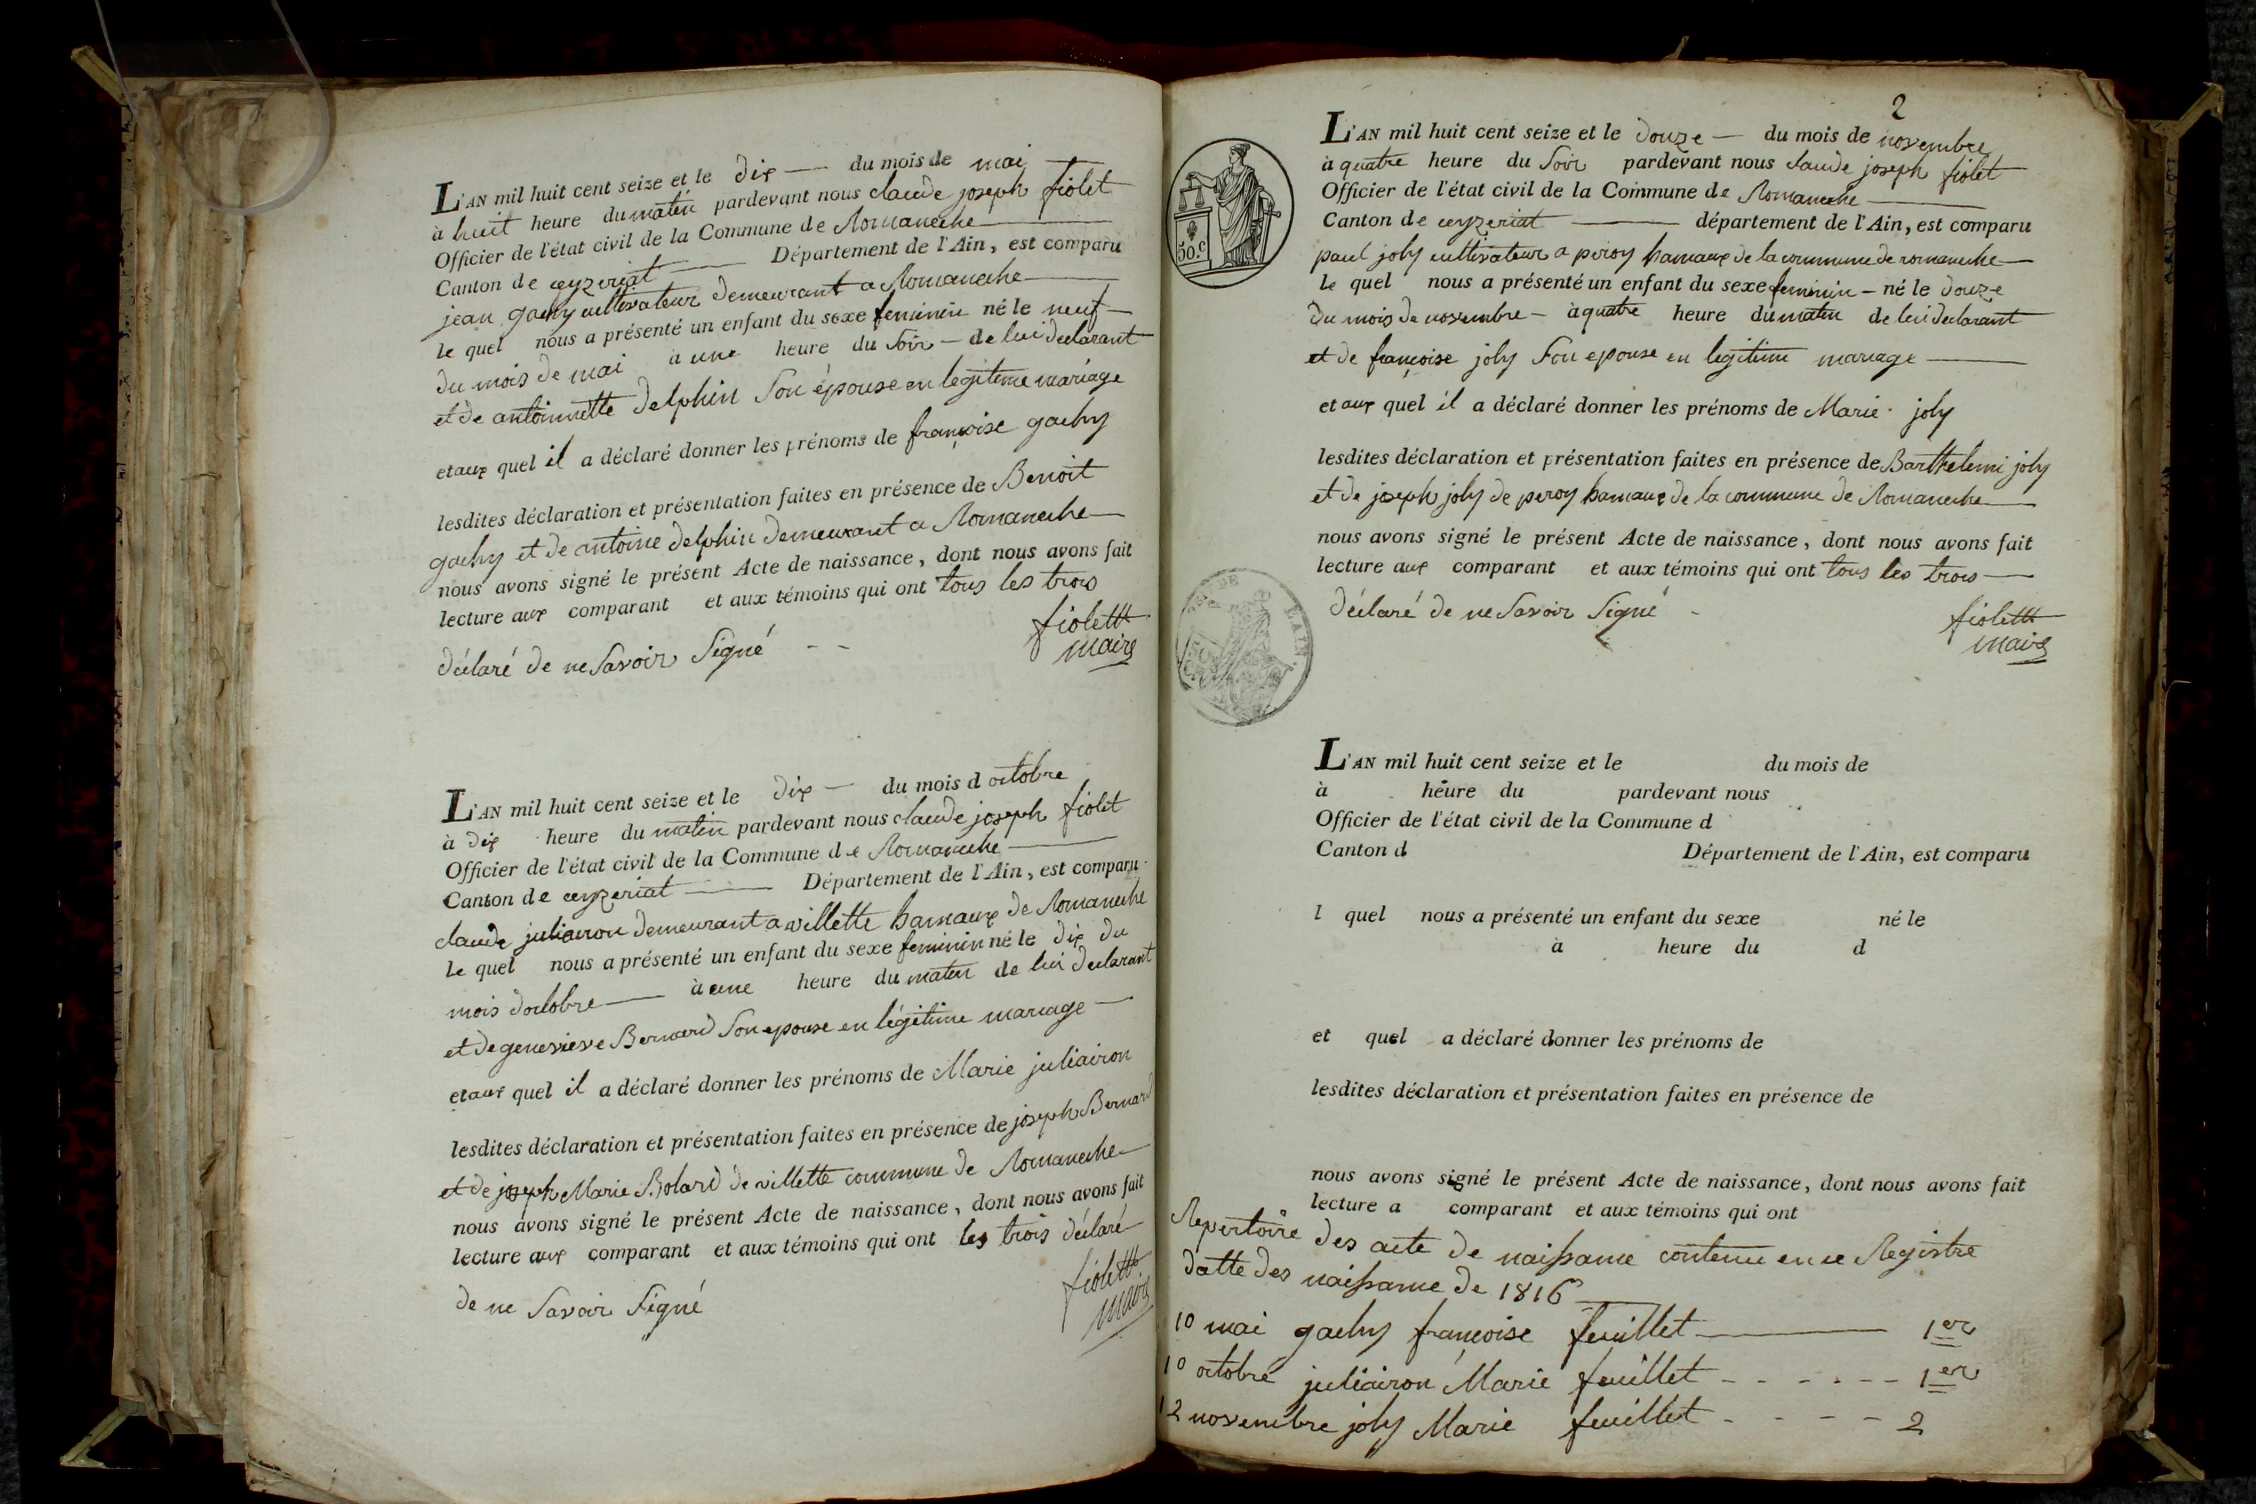 L'AN mil huit cent seize et le dix du mois de mai
à huit heure du matin pardevant nous claude joseph fiolet
Officier de l'état civil de la Commune de Romaneche
Canton de ceyzeriat Département de l'Ain, est comparu
jean gachy cultivateur demeurant a Romaneche
le quel nous a présenté un enfant du sexe feminin né le neuf
du mois de mai à une heure du soir de lui declarant
et de antoinette delphin son épouse en legitime mariage
et aux quel il a déclaré donner les prénoms de françoise gachy
lesdites déclaration et présentation faites en présence de Benoit
gachy et de antoine delphin demeurant a Romaneche
nous avons signé le présent Acte de naissance, dont nous avons fait
lecture aux comparant et aux témoins qui ont tous les trois
déclaré de ne savoir signé
fiolet
maire
L'AN mil huit cent seize et le dix du mois d octobre
à dix heure du matin pardevant nous claude joseph fiolet
Officier de l'état civil de la Commune de Romaneche
Canton de ceyzeriat Département de l'Ain, est comparu
claude juliairon demeurant a villette hamaux de Romaneche
le quel nous a présenté un enfant du sexe feminin né le dix du
mois doctobre à une heure du matin de lui declarant
et de genevieve Bernard son epouse en légitime mariage
et aux quel il a déclaré donner les prénoms de Marie juliairon
lesdites déclaration et présentation faites en présence de joseph Bernard
et de joseph Marie de villette commune de Romaneche
nous avons signé le présent Acte de naissance, dont nous avons fait
lecture aux comparant et aux témoins qui ont les trois déclaré
de ne savoir signé
fiolet
maire
2
L'AN mil huit cent seize et le douze du mois de novembre
à quatre heure du soir pardevant nous claude joseph fiolet
Officier de l'état civil de la Commune de Romaneche
Canton de ceyzeriat département de l'Ain, est comparu
paul joly cultivateur a peroy hamaux de la commune de romaneche
le quel nous a présenté un enfant du sexe feminin né le douze
du mois de novembre à quatre heure du matin de lui declarant
et de françoise joly son epouse en legitime mariage
et aux quel il a déclaré donner les prénoms de Marie joly
lesdites déclaration et présentation faites en présence de Barthelemi joly
et de joseph joly de peroy hamaux de la commune de Romaneche
nous avons signé le présent Acte de naissance, dont nous avons fait
lecture aux comparant et aux témoins qui ont tous les trois
déclaré de ne savoir signé
fiolet
maire
50.c
L'AN mil huit cent seize et le du mois de
à heure du pardevant nous
Officier de l'état civil de la Commune d
Canton d Département de l'Ain, est comparu
l quel nous a présenté un enfant du sexe né le
à heure du d
et quel a déclaré donner les prénoms de
lesdites déclaration et présentation faites en présence de
nous avons signé le présent Acte de naissance, dont nous avons fait
lecture a comparant et aux témoins qui ont
Repertoire des acte de naissance contenu en ce Registre
datte des naissance de 1816
10 mai gachy françoise feuillet 1er
10 octobre juliairon Marie feuillet 1er
12 novembre joly Marie feuillet 2